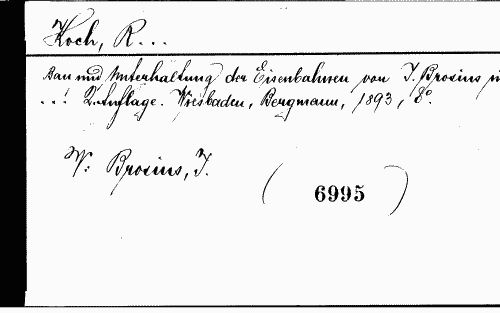 Koch, R...
Bau und Unterhaltung der Eisenbahnen von J. Brosius
...! 2. Auflage. Wiesbaden, Bergmann, 1893, 8°.
V: Brosius, J.
(6995)